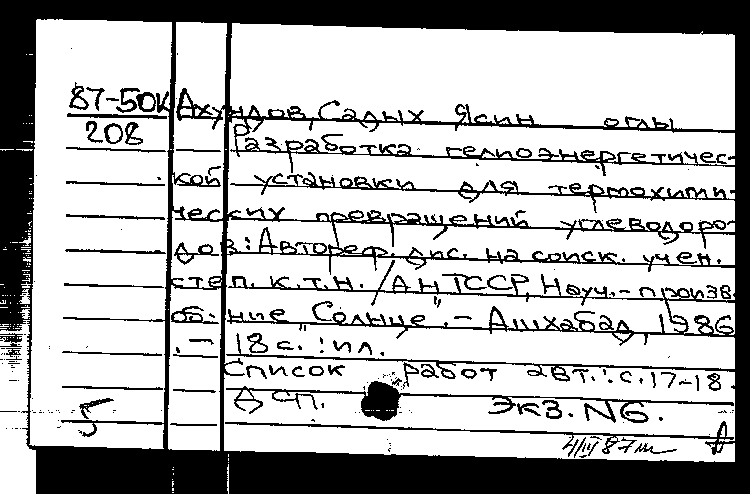 87-50К Ахундов, Садых Ясин оглы
208 Разработка гелиоэнергетичес-
кой установки для термохими-
ческих превращений углеводоро-
дов: Автореф. дис. на соиск. учен.
степ. к.т.н. / АН ТССР, Науч.-произв.
об-ние "Солнце". - Ашхабад, 1986
. - 18 с. : ил.
Список работ авт.: с. 17-18.
ДСП. Экз. N6.
5
4/III 87